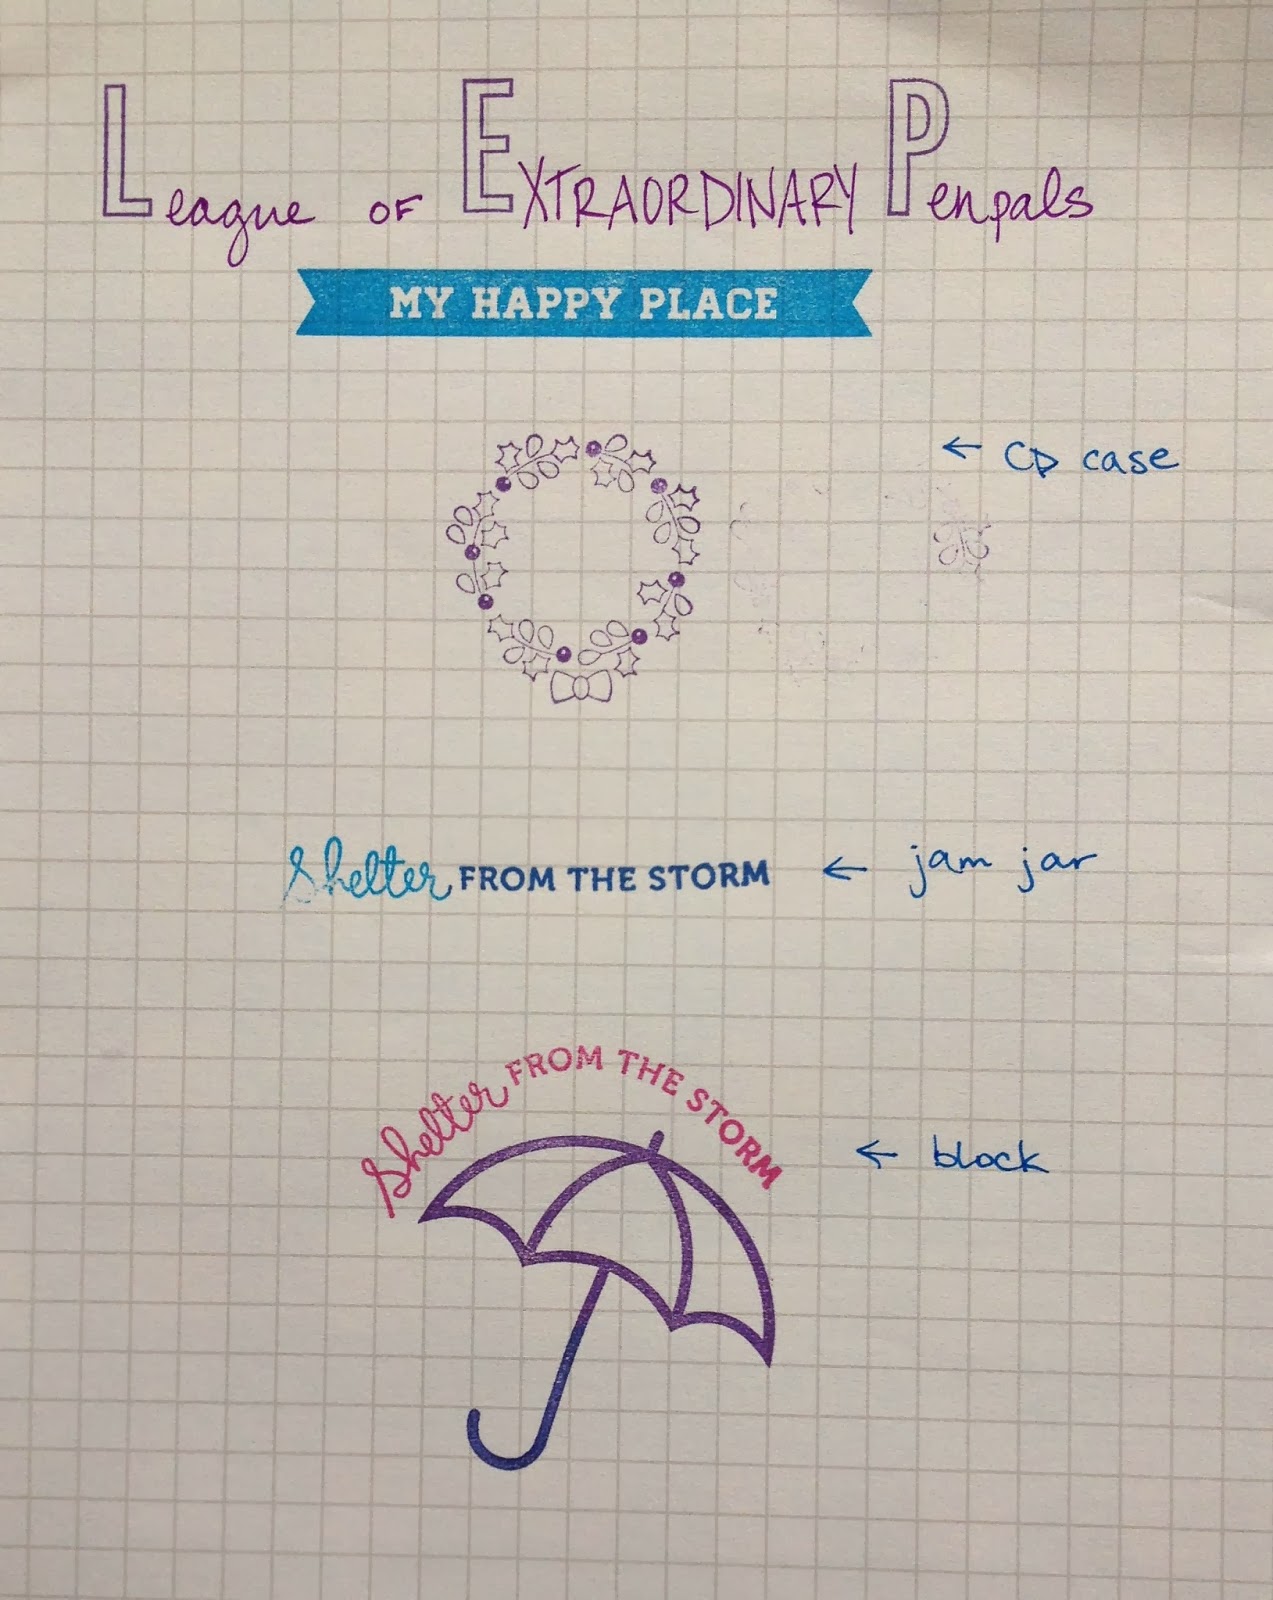 League of EXTRAORDINARY Penpals
MY HAPPY PLACE
← CD case
Shelter FROM THE STORM ← jam jar
Shelter FROM THE STORM
← block